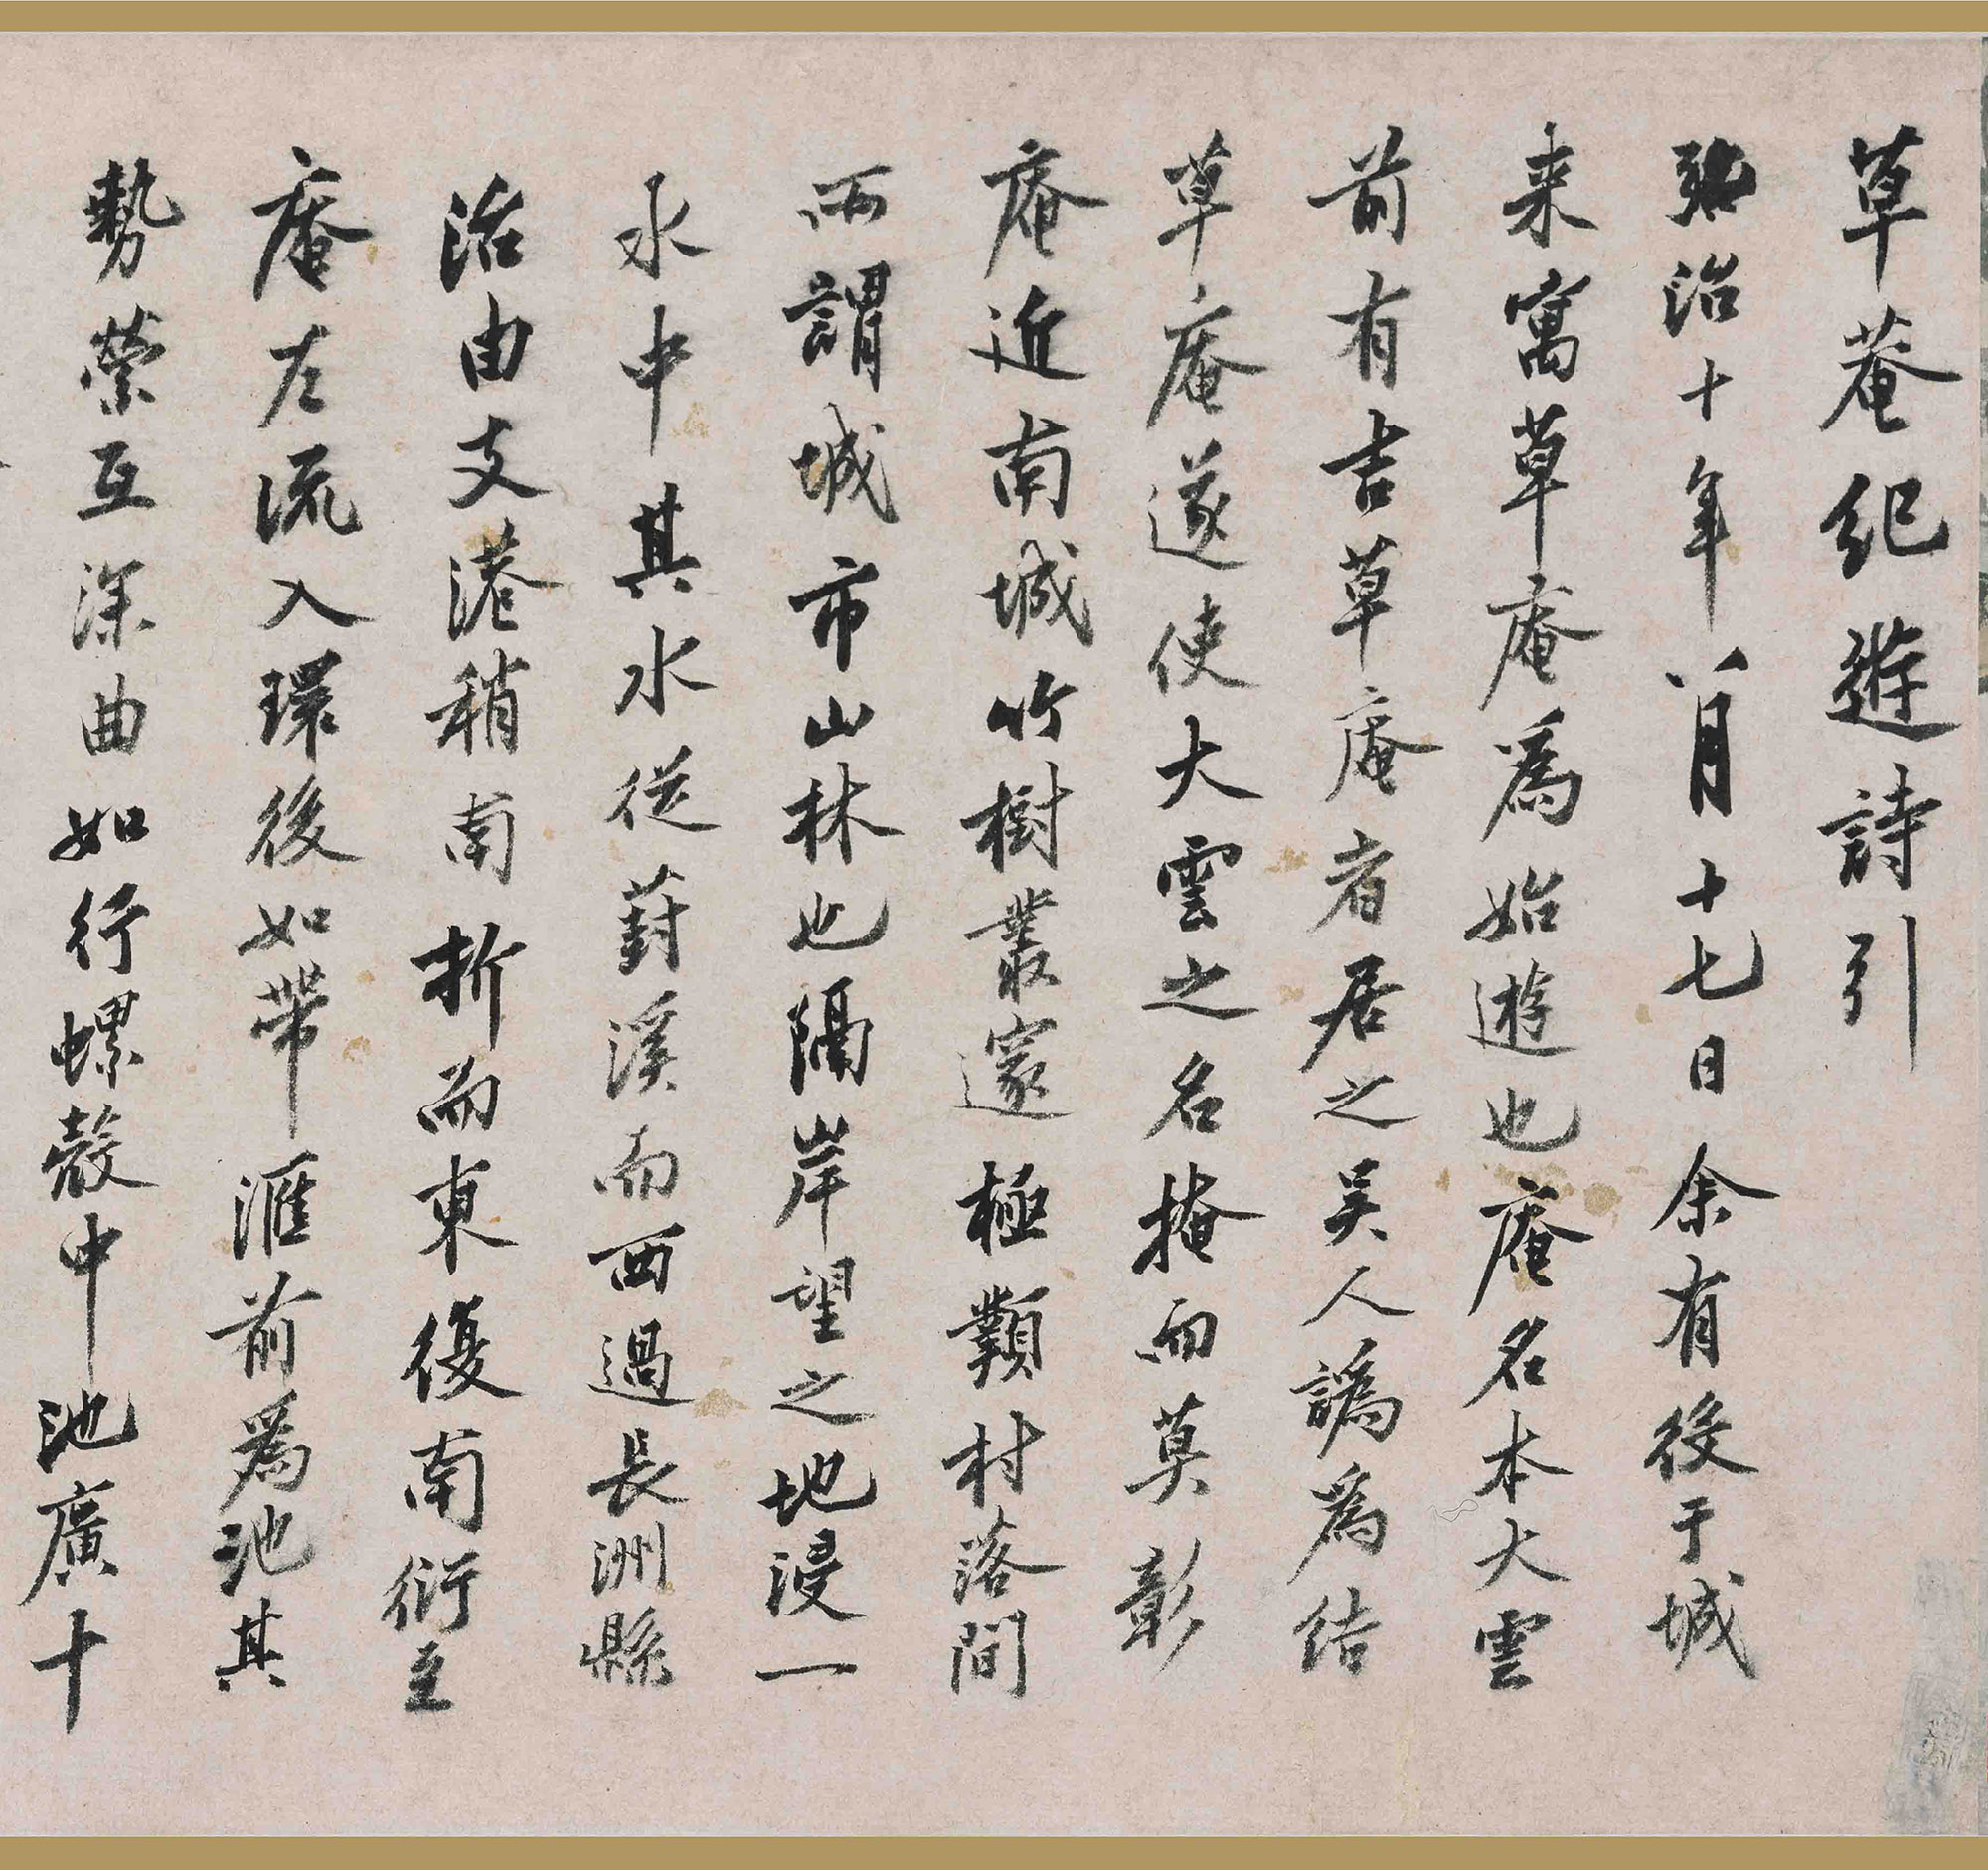 草菴紀遊詩引
弘治十年八月十七日余有役于城
来寓草庵為始遊也庵名本大雲
前有吉草庵者居之吴人譌為结
草庵遂使大雲之名掩而莫彰
庵近南城竹樹叢邃極類村落間
而謂城市山林也隔岸望之地浸一
水中其水從葑溪而西過長洲縣
治由支港稍南折而東復南衍至
庵左流入環後如帶滙前為池其
勢縈互深曲如行螺殼中池廣十